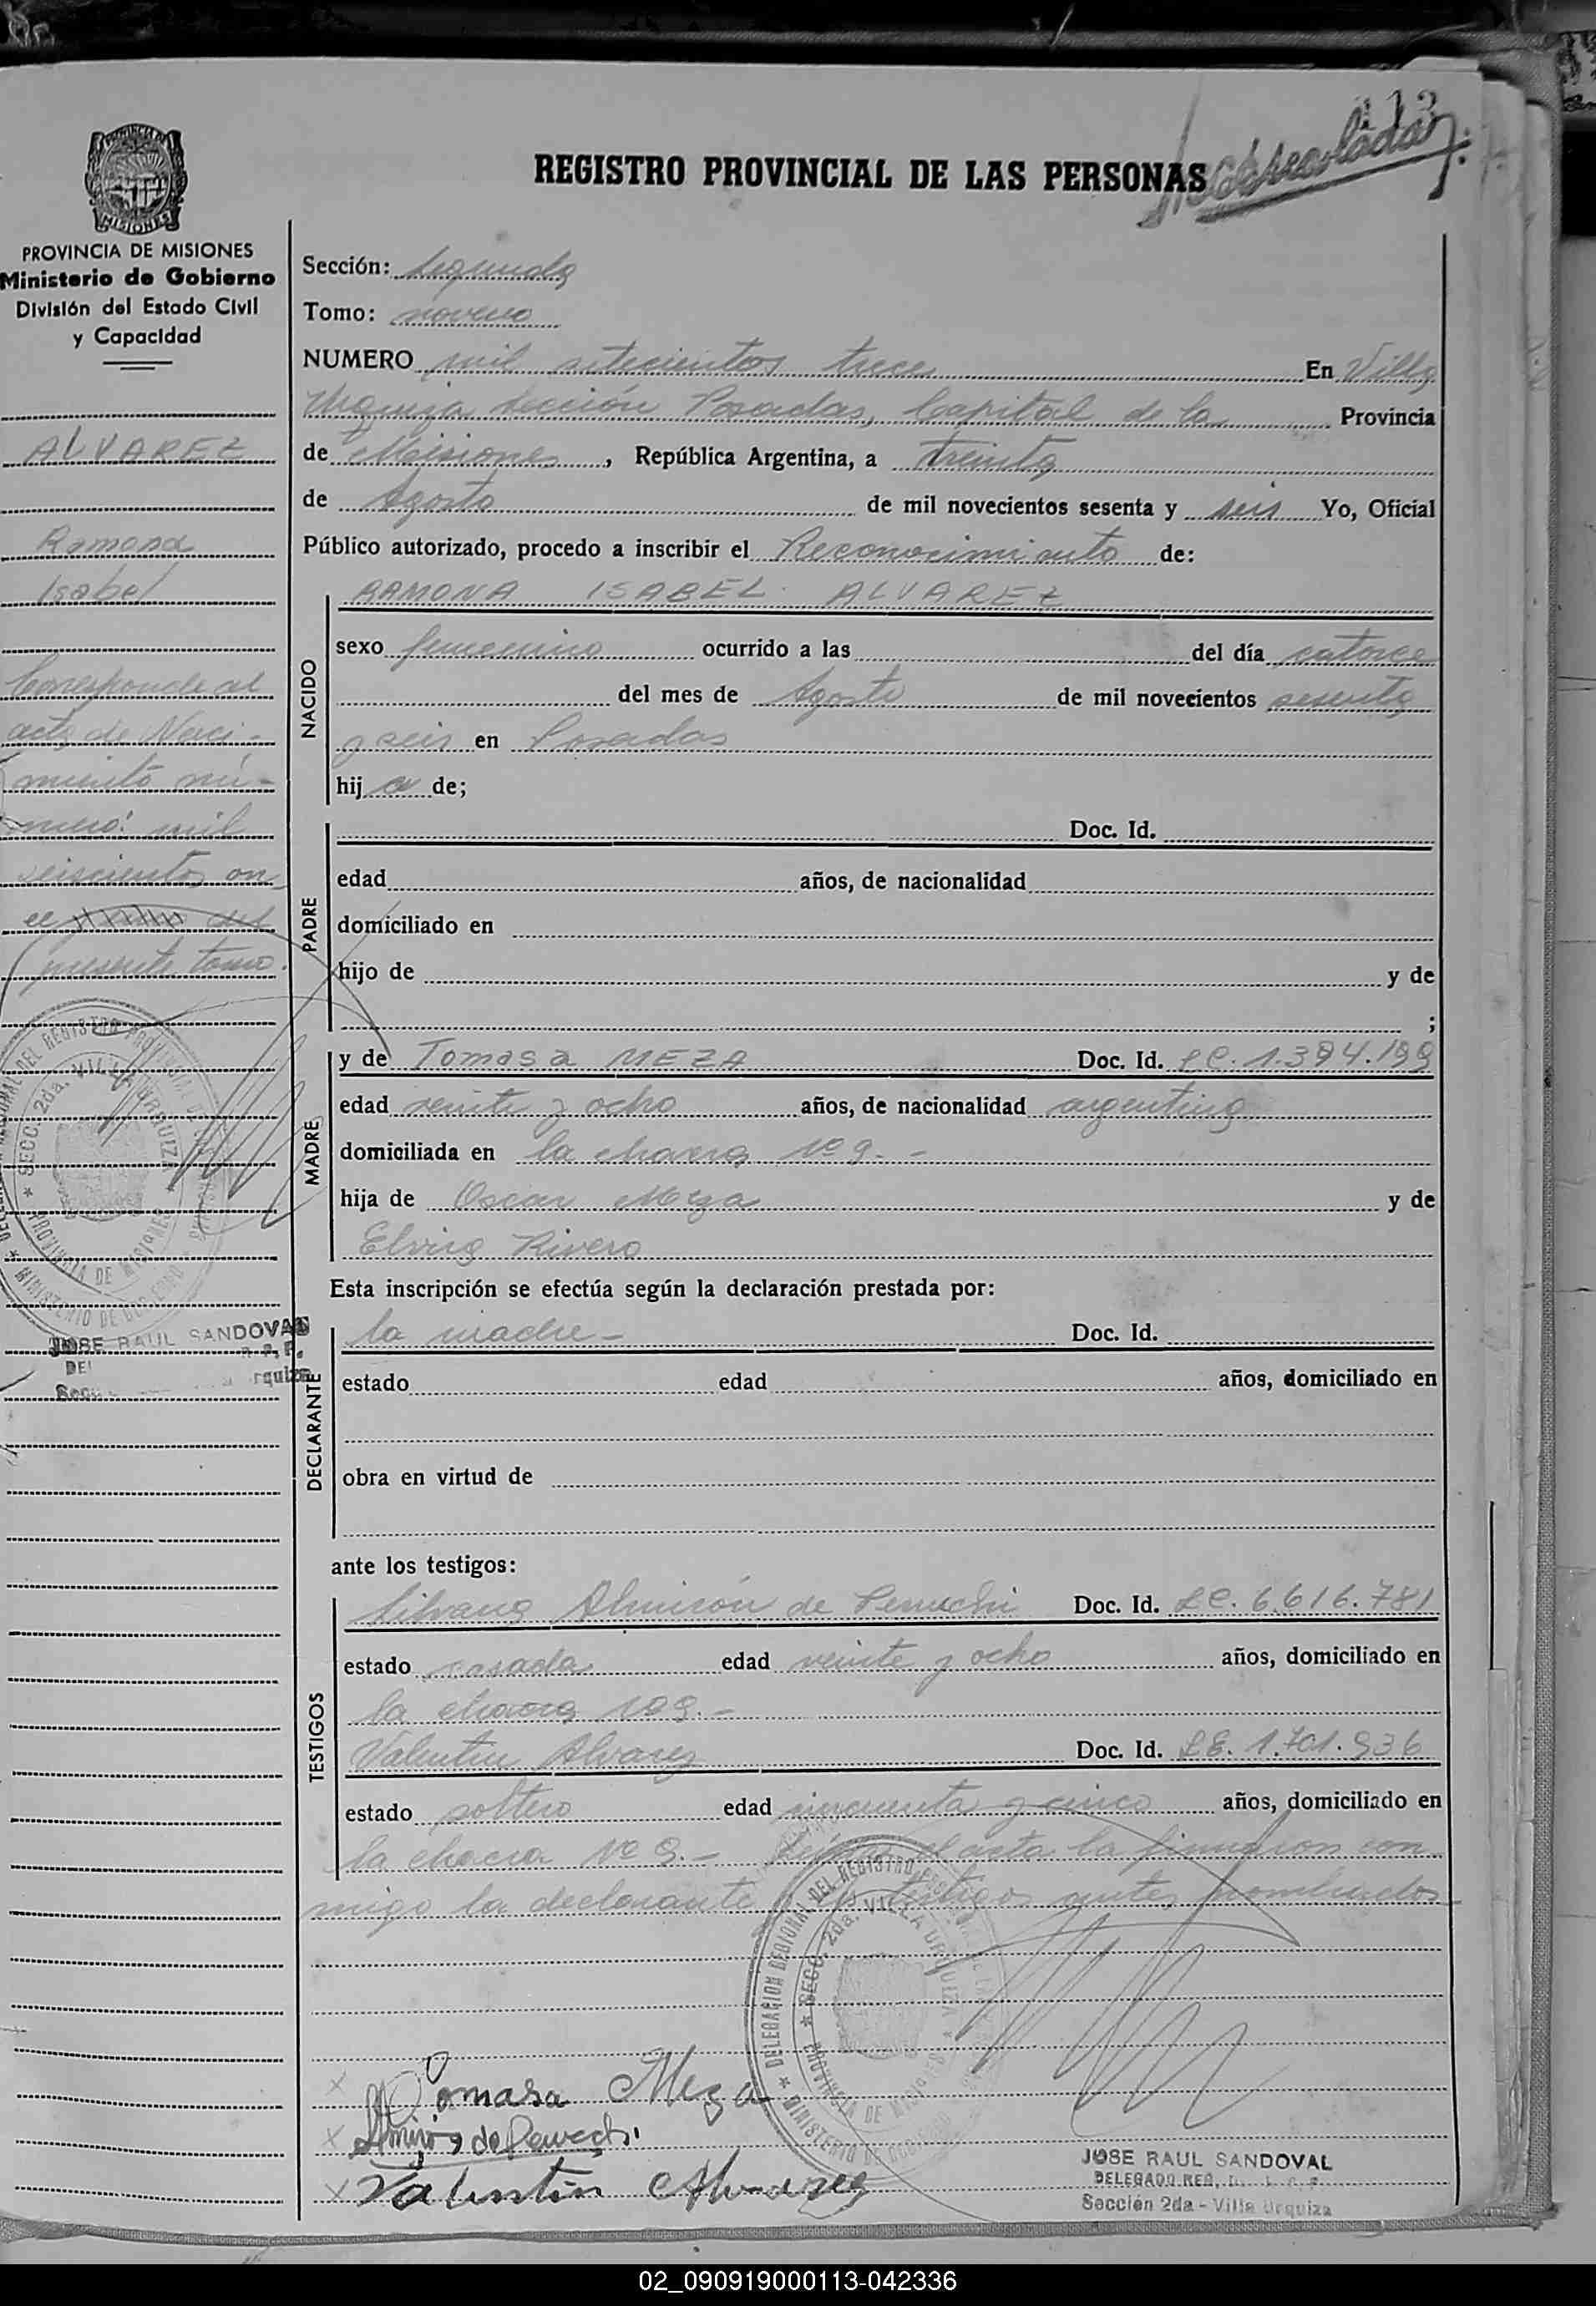 113
REGISTRO PROVINCIAL DE LAS PERSONAS
MISIONES
PROVINCIA DE MISIONES
Ministerio de Gobierno
División del Estado Civil
y Capacidad
ALVAREZ
Ramona
Isabel
Corresponde al
acta de Naci-
miento nú-
mero: mil
seiscientos on
ce del
presente tomo.
JOSE RAUL SANDOVAL
Sección: Segunda
Tomo: noveno
NUMERO mil setecientos trece En Villa
Urquiza Sección Posadas, Capital de la Provincia
de Misiones, República Argentina, a treinta
de Agosto de mil novecientos sesenta y seis Yo, Oficial
Público autorizado, procedo a inscribir el Reconocimiento de:
NACIDO
RAMONA ISABEL ALVAREZ
sexo femenino ocurrido a las del día catorce
del mes de Agosto de mil novecientos sesenta
y seis en Posadas
hij a de;
PADRE
Doc. Id.
edad años, de nacionalidad
domiciliado en
hijo de y de
;
MADRE
y de Tomasa MEZA Doc. Id. LC. 1.394.199
edad veinte y ocho años, de nacionalidad argentina
domiciliada en la chacra Nº 9.-
hija de Oscar Meza y de
Elvira Rivero
Esta inscripción se efectúa según la declaración prestada por:
DECLARANTE
la madre- Doc. Id.
estado edad años, domiciliado en
obra en virtud de
ante los testigos:
TESTIGOS
Silvana Almirón de Peruchi Doc. Id. LC. 6.616.781
estado casada edad veinte y ocho años, domiciliado en
la chacra Nº 9.-
Valentin Alvarez Doc. Id. LE. 1.701.936
estado soltero edad cincuenta y cinco años, domiciliado en
la chacra Nº 9.- Leída el acta la firmaron con
migo la declarante y testigos antes nombrados
DELEGACION REGIONAL DEL REGISTRO
SECC. 2da. VILLA URQUIZA
PROVINCIA DE MISIONES
MINISTERIO DE GOBIERNO
x Tomasa Meza
x Almirón de Peruchi
x Valentin Alvarez
JOSE RAUL SANDOVAL
DELEGADO REG.
Sección 2da - Villa Urquiza
02_090919000113-042336